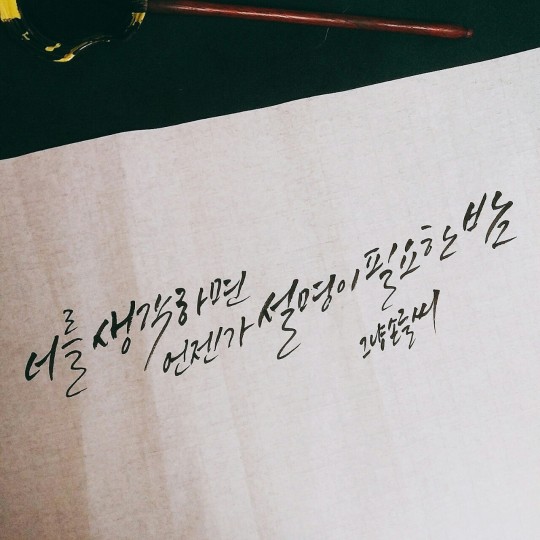 너를 생각하면
언젠가 설명이 필요한 밤
그냥손글씨